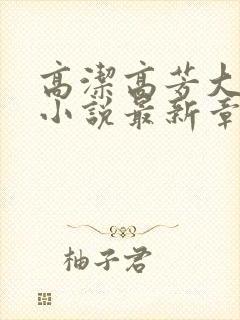 高潔高芳大
小說最新章
柚子君